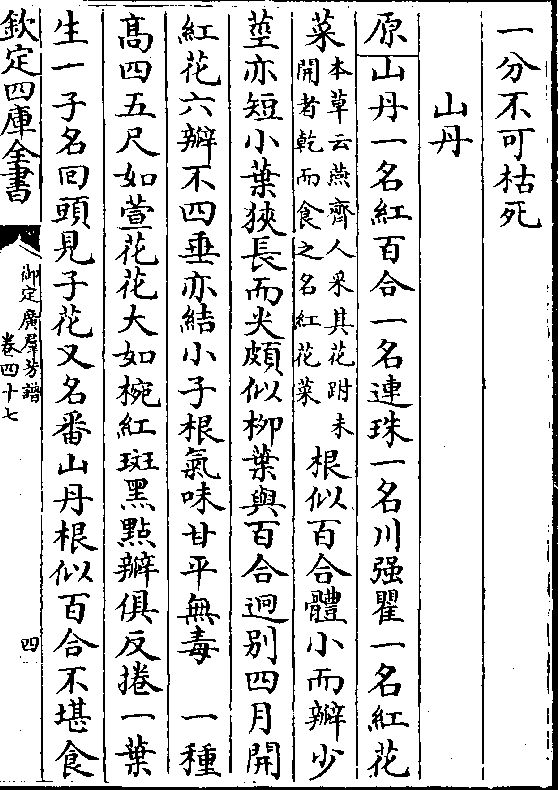 一分不可枯死
山丹
原山丹一名紅百合一名連珠一名川强瞿一名紅花
菜本草云燕齊人采其花跗未
開者乾而食之名紅花菜
根似百合體小而瓣少
莖亦短小葉狹長而尖頗似柳葉與百合迥别四月開
紅花六瓣不四垂亦結小子根氣味甘平無毒　一種
髙四五尺如萱花花大如椀紅斑黑點瓣俱反捲一葉
生一子名回頭見子花又名番山丹根似百合不堪食
欽定四庫全書
御定廣羣芳譜
卷四十七
四